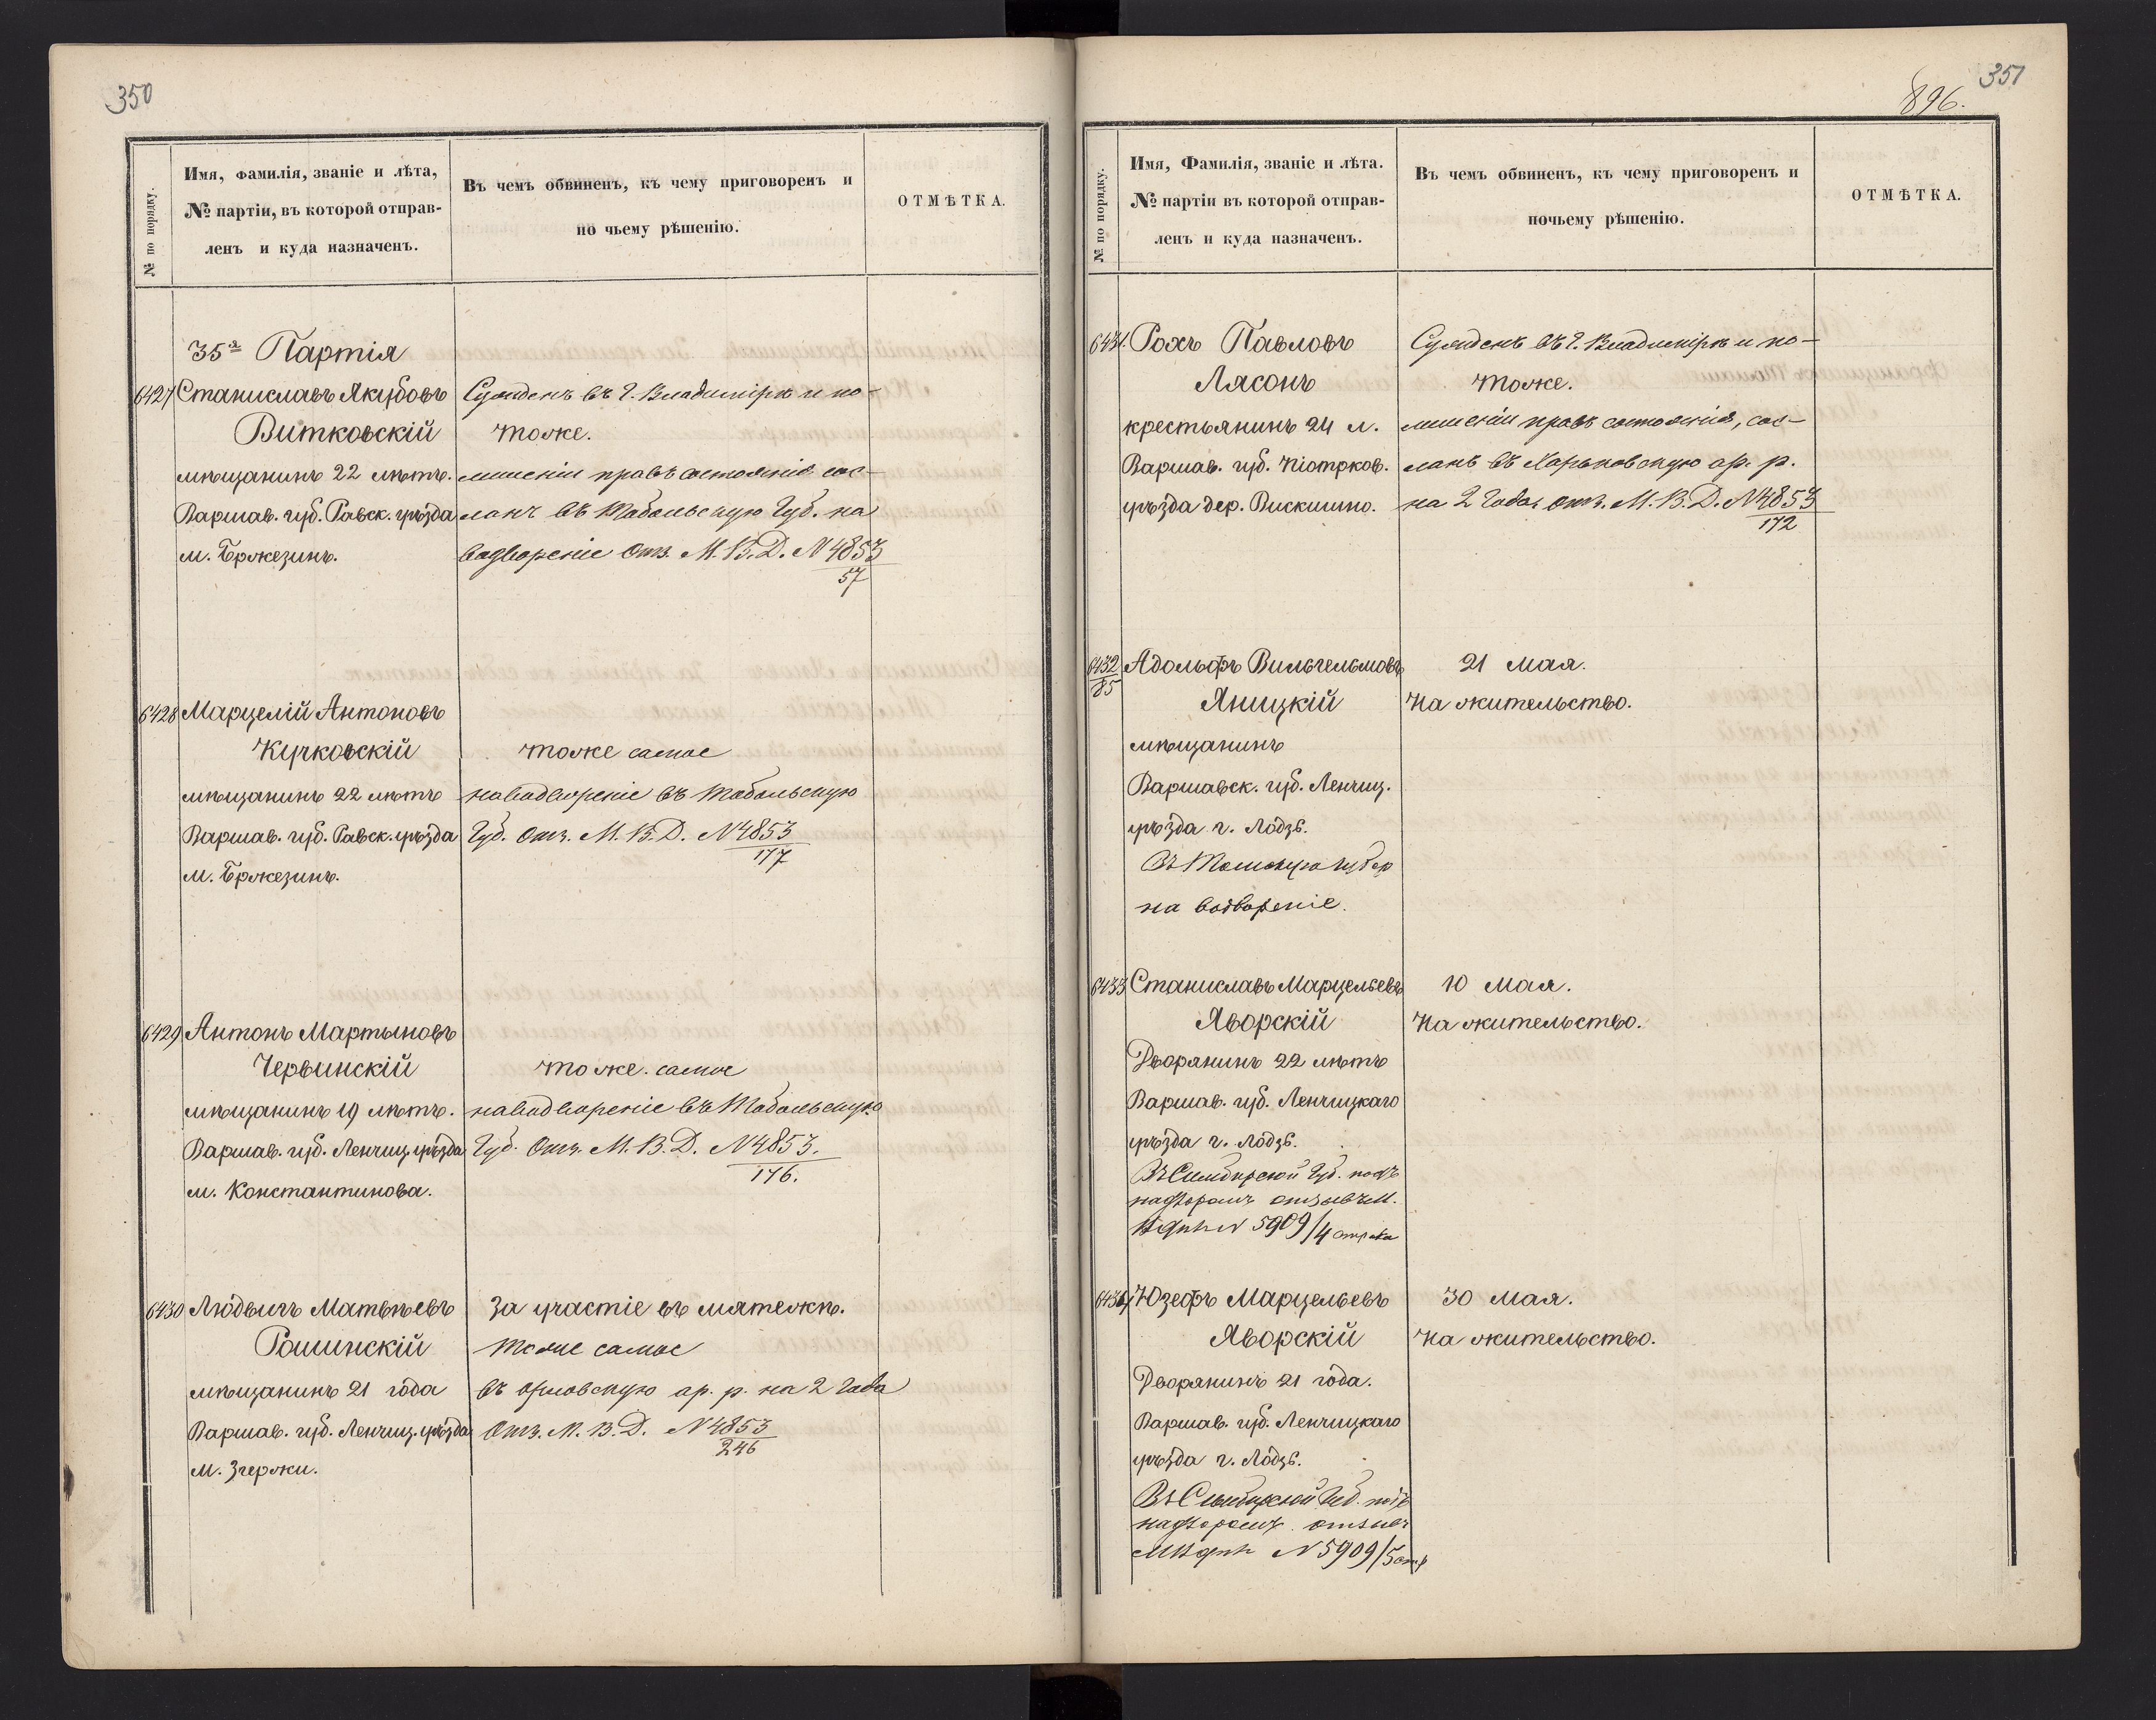 350
№ по порядку.
Имя, фамилія, званіе и лѣта,
№ партіи, въ которой отправ-
ленъ и куда назначенъ.
Въ чемъ обвиненъ, къ чему приговоренъ и
по чьему рѣшенію.
ОТМѢТКА.
35я Партія
6427 Станиславъ Якубовъ
Витковскій
мѣщанинъ 22 лѣтъ.
Варшав. губ. Равск. уѣзда
м. Бржезинъ.
Сужденъ въ г. Владимірѣ и по-
тоже.
лишеніи правъ состоянія сос-
ланъ въ Тобольскую Губ. на
водвореніе Отз. М. В. Д. N 4853
57
6428 Марцелій Антоновъ
Кучковскій
мѣщанинъ 22 лѣтъ
Варшав. губ. Равск. уѣзда
м. Бржезинъ.
тоже самое
на водвореніе въ Тобольскую
Губ. Отз. М. В. Д. N 4853
177
6429 Антонъ Мартыновъ
Червинскій
мѣщанинъ 19 лѣтъ.
Варшав. губ. Ленчиц. уѣзда
м. Константинова.
тоже. самое
на водвореніе въ Тобольскую
Губ. Отз. М. В. Д. N 4853.
176.
6430 Людвигъ Матвѣевъ
Рошинскій
мѣщанинъ 21 года
Варшав. губ. Ленчиц. уѣзда
м. Згержи.
За участіе въ мятежѣ.
Тоже самое
въ орловскую ар. р. на 2 года
Отз. М. В. Д. N 4853
246
351
896.
№ по порядку.
Имя, Фамилія, званіе и лѣта.
№ партіи въ которой отправ-
ленъ и куда назначенъ.
Въ чемъ обвиненъ, къ чему приговоренъ и
почьему рѣшенію.
ОТМѢТКА.
6431. Рохъ Павловъ
Лясонъ
крестьянинъ 24 л.
Варшав. губ. Піотрков.
уѣзда дер. Вискишно.
Сужденъ въ г. Владимірѣ и по-
тоже.
лишеніи правъ состоянія, сос-
ланъ въ Харьковскую ар. р.
на 2 года отз. М. В. Д. N 4853
172
6432
85
Адольфъ Вильгельмовъ
Яницкій
мѣщанинъ
Варшавск. губ. Ленчиц.
уѣзда г. Лодзь.
Въ Томскую губер
на водвореніе.
21 Мая.
На жительство.
6433 Станиславъ Марцельевъ
Яворскій
Дворянинъ 22 лѣтъ
Варшав. губ. Ленчицкаго
уѣзда г. Лодзь.
Въ Симбирской Губ. подъ
надзоромъ отзывъ М.
N 5909/4
10 Мая.
На жительство.
6434 Юзефъ Марцельевъ
Яворскій
Дворянинъ 21 года.
Варшав. губ. Ленчицкаго
уѣзда г. Лодзь.
Въ Симбирской Губ. подъ
надзоромъ. отзывъ
N 5909/5
30 Мая.
На жительство.